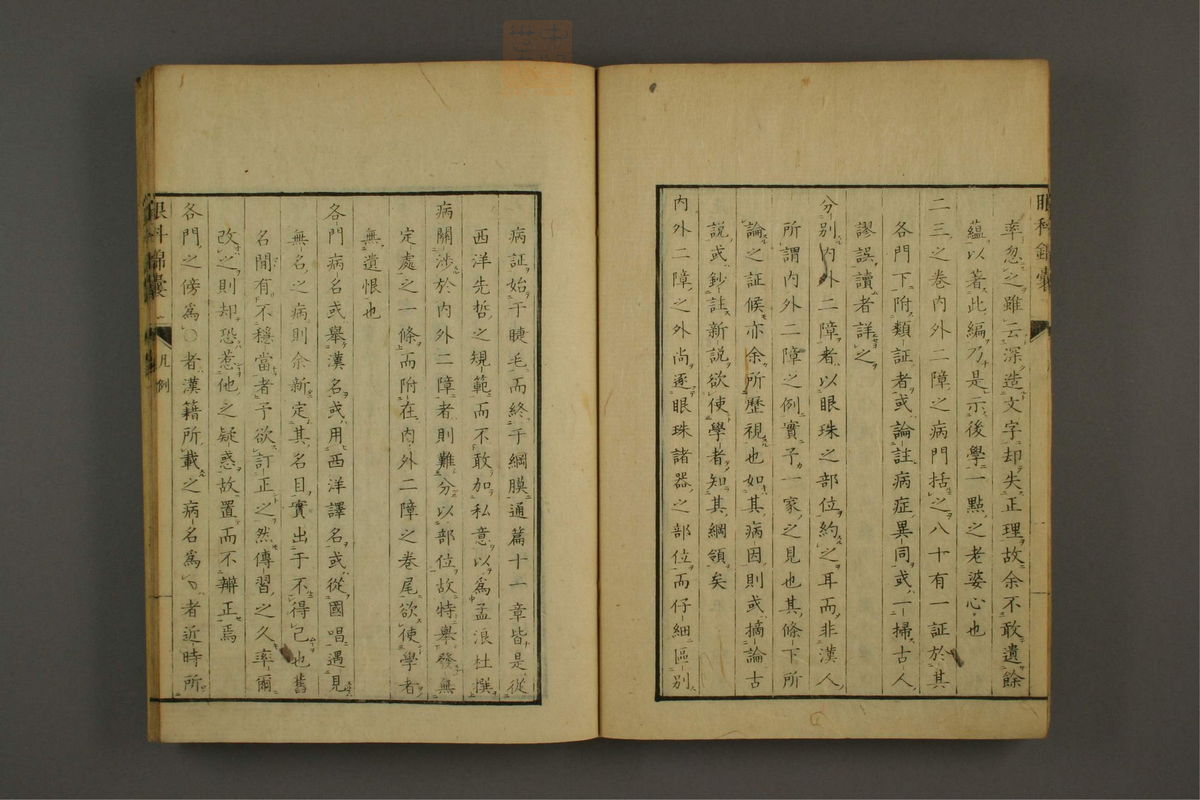 眼科錦囊
率忽之雖云深造文字却失正理故余不敢遺餘
蘊以著此編乃是示後學一點之老婆心也
二三之卷內外二障之病門括之八十有一証於其
各門下附類証者或論註病症異同或一掃古人
謬誤讀者詳之
分別內外二障者以眼珠之部位約之耳而非漢人
所謂內外二障之例實予一家之見也其條下所
論之証候亦余所歷視也如其病因則或摘論古
說或鈔註新說欲使學者知其綱領矣
內外二障之外尚逐眼珠諸器之部位而仔細區別
病証始于睫毛而終于網膜通篇十一章皆是從
西洋先哲之規範而不敢加私意以爲孟浪杜撰
病關涉於內外二障者則難分以部位故特舉發無
定處之一條而附在內外二障之卷尾欲使學者
無遺恨也
各門病名或舉漢名或用西洋譯名或從國唱遇見
無名之病則余新定其名目實出于不得已也舊
名間有不穩當者予欲訂正之然傳習之久率爾
改之則却恐惹他之疑惑故置而不辨正焉
各門之傍爲○者漢籍所載之病名爲﹆者近時所
眼科錦囊
凡例